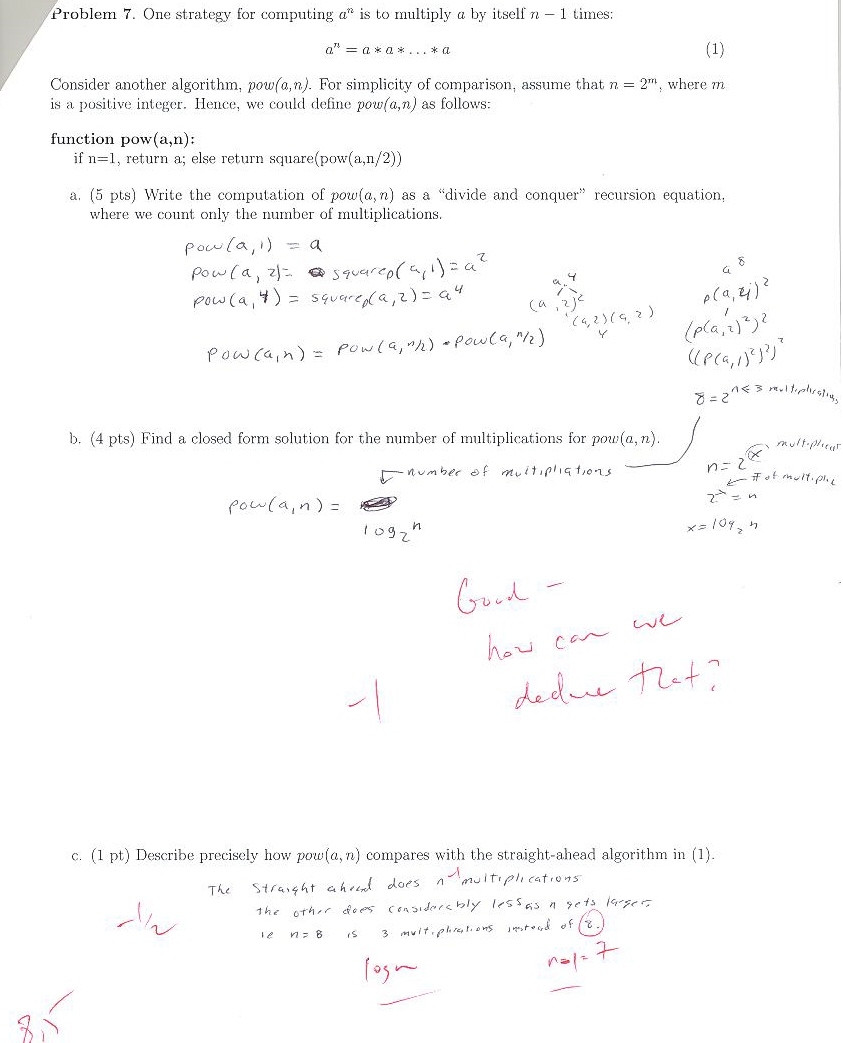 Problem 7. One strategy for computing aⁿ is to multiply a by itself n − 1 times:
aⁿ = a ∗ a ∗ . . . ∗ a (1)
Consider another algorithm, pow(a,n). For simplicity of comparison, assume that n = 2ᵐ, where m
is a positive integer. Hence, we could define pow(a,n) as follows:
function pow(a,n):
if n=1, return a; else return square(pow(a,n/2))
a. (5 pts) Write the computation of pow(a, n) as a “divide and conquer” recursion equation,
where we count only the number of multiplications.
pow(a,1) = a
pow(a,2)= squarep(a,1)=a²
pow(a,4) = squarep(a,2)=a⁴
pow(a,n) = pow(a,n/2) * pow(a,n/2)
a⁴
(a,2)²
(a,2)(a,2)
4
a⁸
p(a,4)²
(p(a,2)²)²
((p(a,1)²)²)²
8=2 n≤3 multiplications
b. (4 pts) Find a closed form solution for the number of multiplications for pow(a, n).
number of multipliations
pow(a,n) =
log₂n
n=2ˣ
# of multiplic
2ˣ = n
x=log₂n
Good –
how can we
deduce that?
-1
c. (1 pt) Describe precisely how pow(a, n) compares with the straight-ahead algorithm in (1).
The straight ahead does n-1 multiplications
the other does considerably less as n gets larger
ie n=8 is 3 multiplications instead of 8.
-1/2
log n
n-1=7
8.5